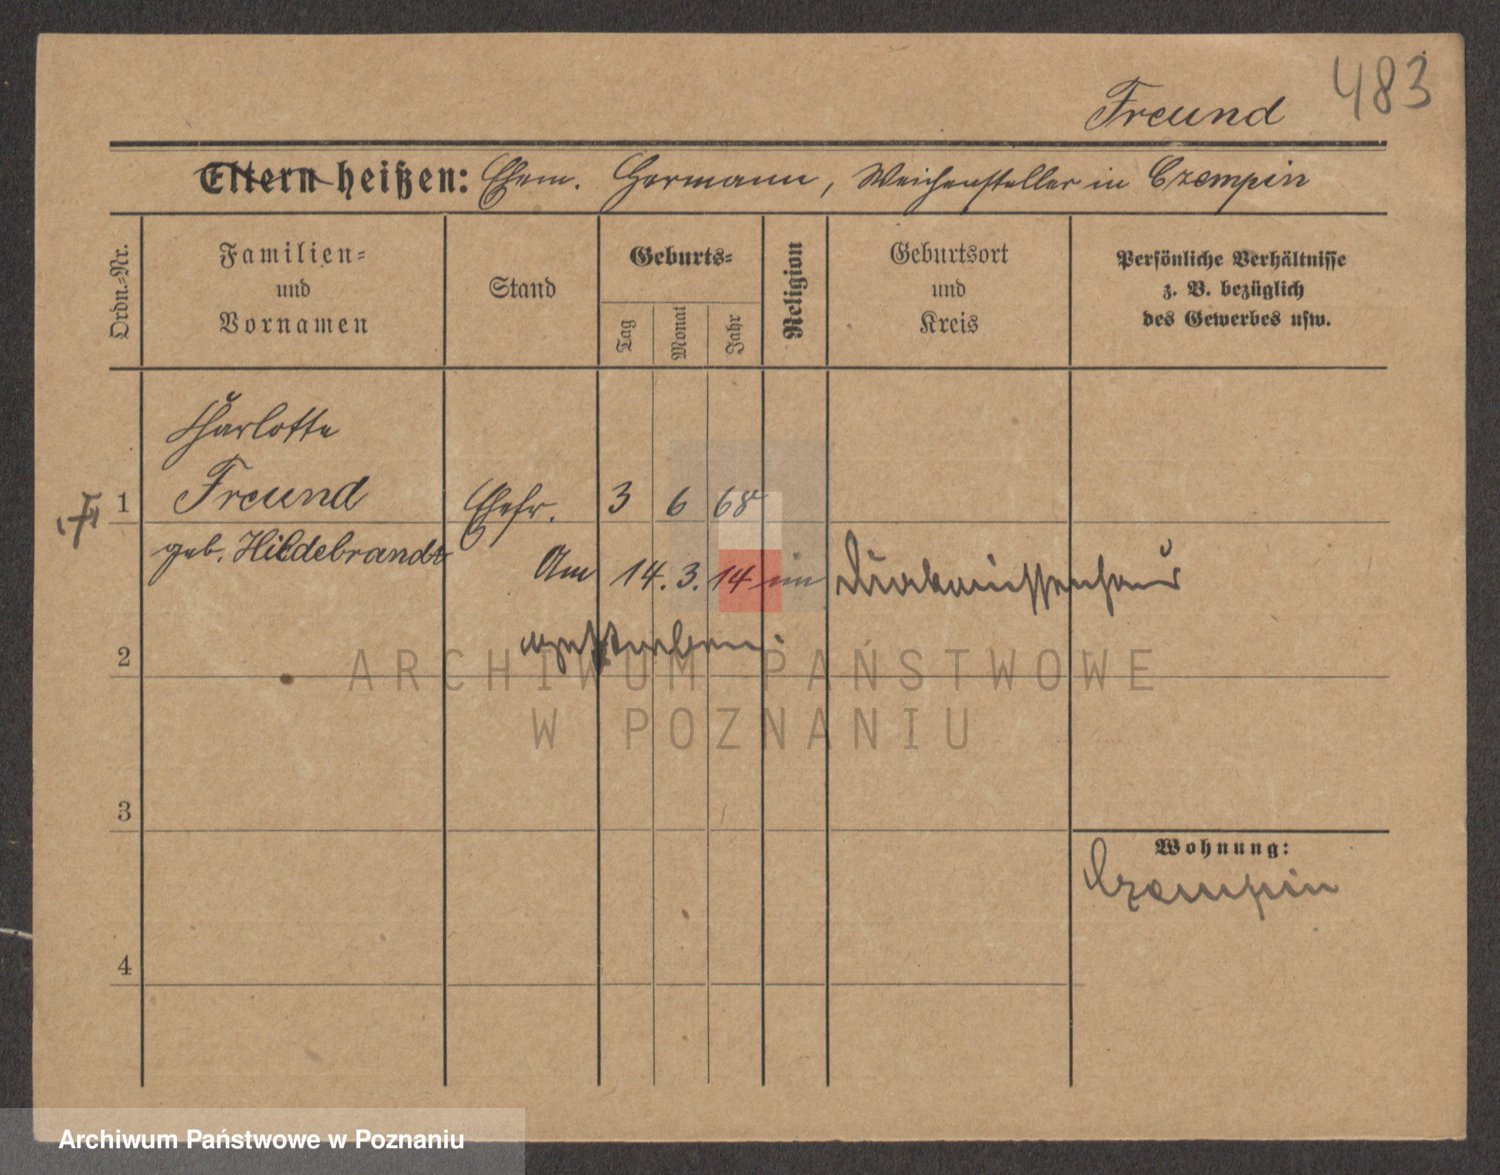 483
Freund
Eltern heißen: Ehem. Hermann, Weichensteller in Czempin
Ordn.-Nr.
Familien-
und
Vornamen
Stand
Geburts-
Tag
Monat
Jahr
Religion
Geburtsort
und
Kreis
Persönliche Verhältnisse
z. B. bezüglich
des Gewerbes usw.
Charlotte
1 Freund Ehefr. 3 6 68
geb. Hildebrandt
Am 14. 3. 14 im Diakonissenhaus
gestorben.
2
3
4
Wohnung:
Czempin
ARCHIWUM PAŃSTWOWE
W POZNANIU
Archiwum Państwowe w Poznaniu